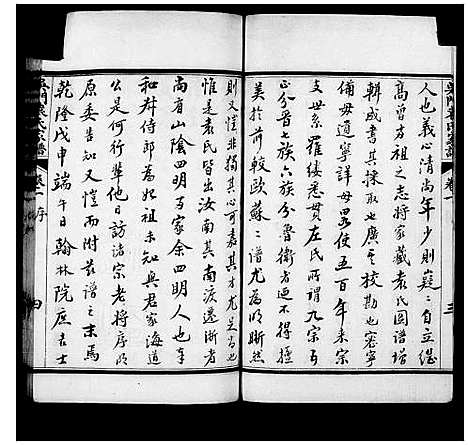 吳門袁氏家譜
三
人也義心清尚年少則嶷嶷自立纘
高曾方祖之志將家藏袁氏圖譜增
輯成書其採取也廣其校勘也密寧
備毋遺寧詳毋畧使五百年來宗
支世系羅縷悉貫左氏所謂九宗五
正分晉七族六族分魯衛者逈不得擅
美於前較歐蘇二譜尤為明晰然
則又豈非獨其心可嘉其才尤足尚也
惟是袁氏皆出汝南其南渡遷浙者
尚有山陰四明多家余四明人也幸
和府侍郎為始祖未知與君家海道
公是何行輩他日訪諸宗老將序明
原委告知又豈而附荒譜之末焉
乾隆戊申端午日翰林院庶吉士
吳門袁氏家譜
卷一 序
四